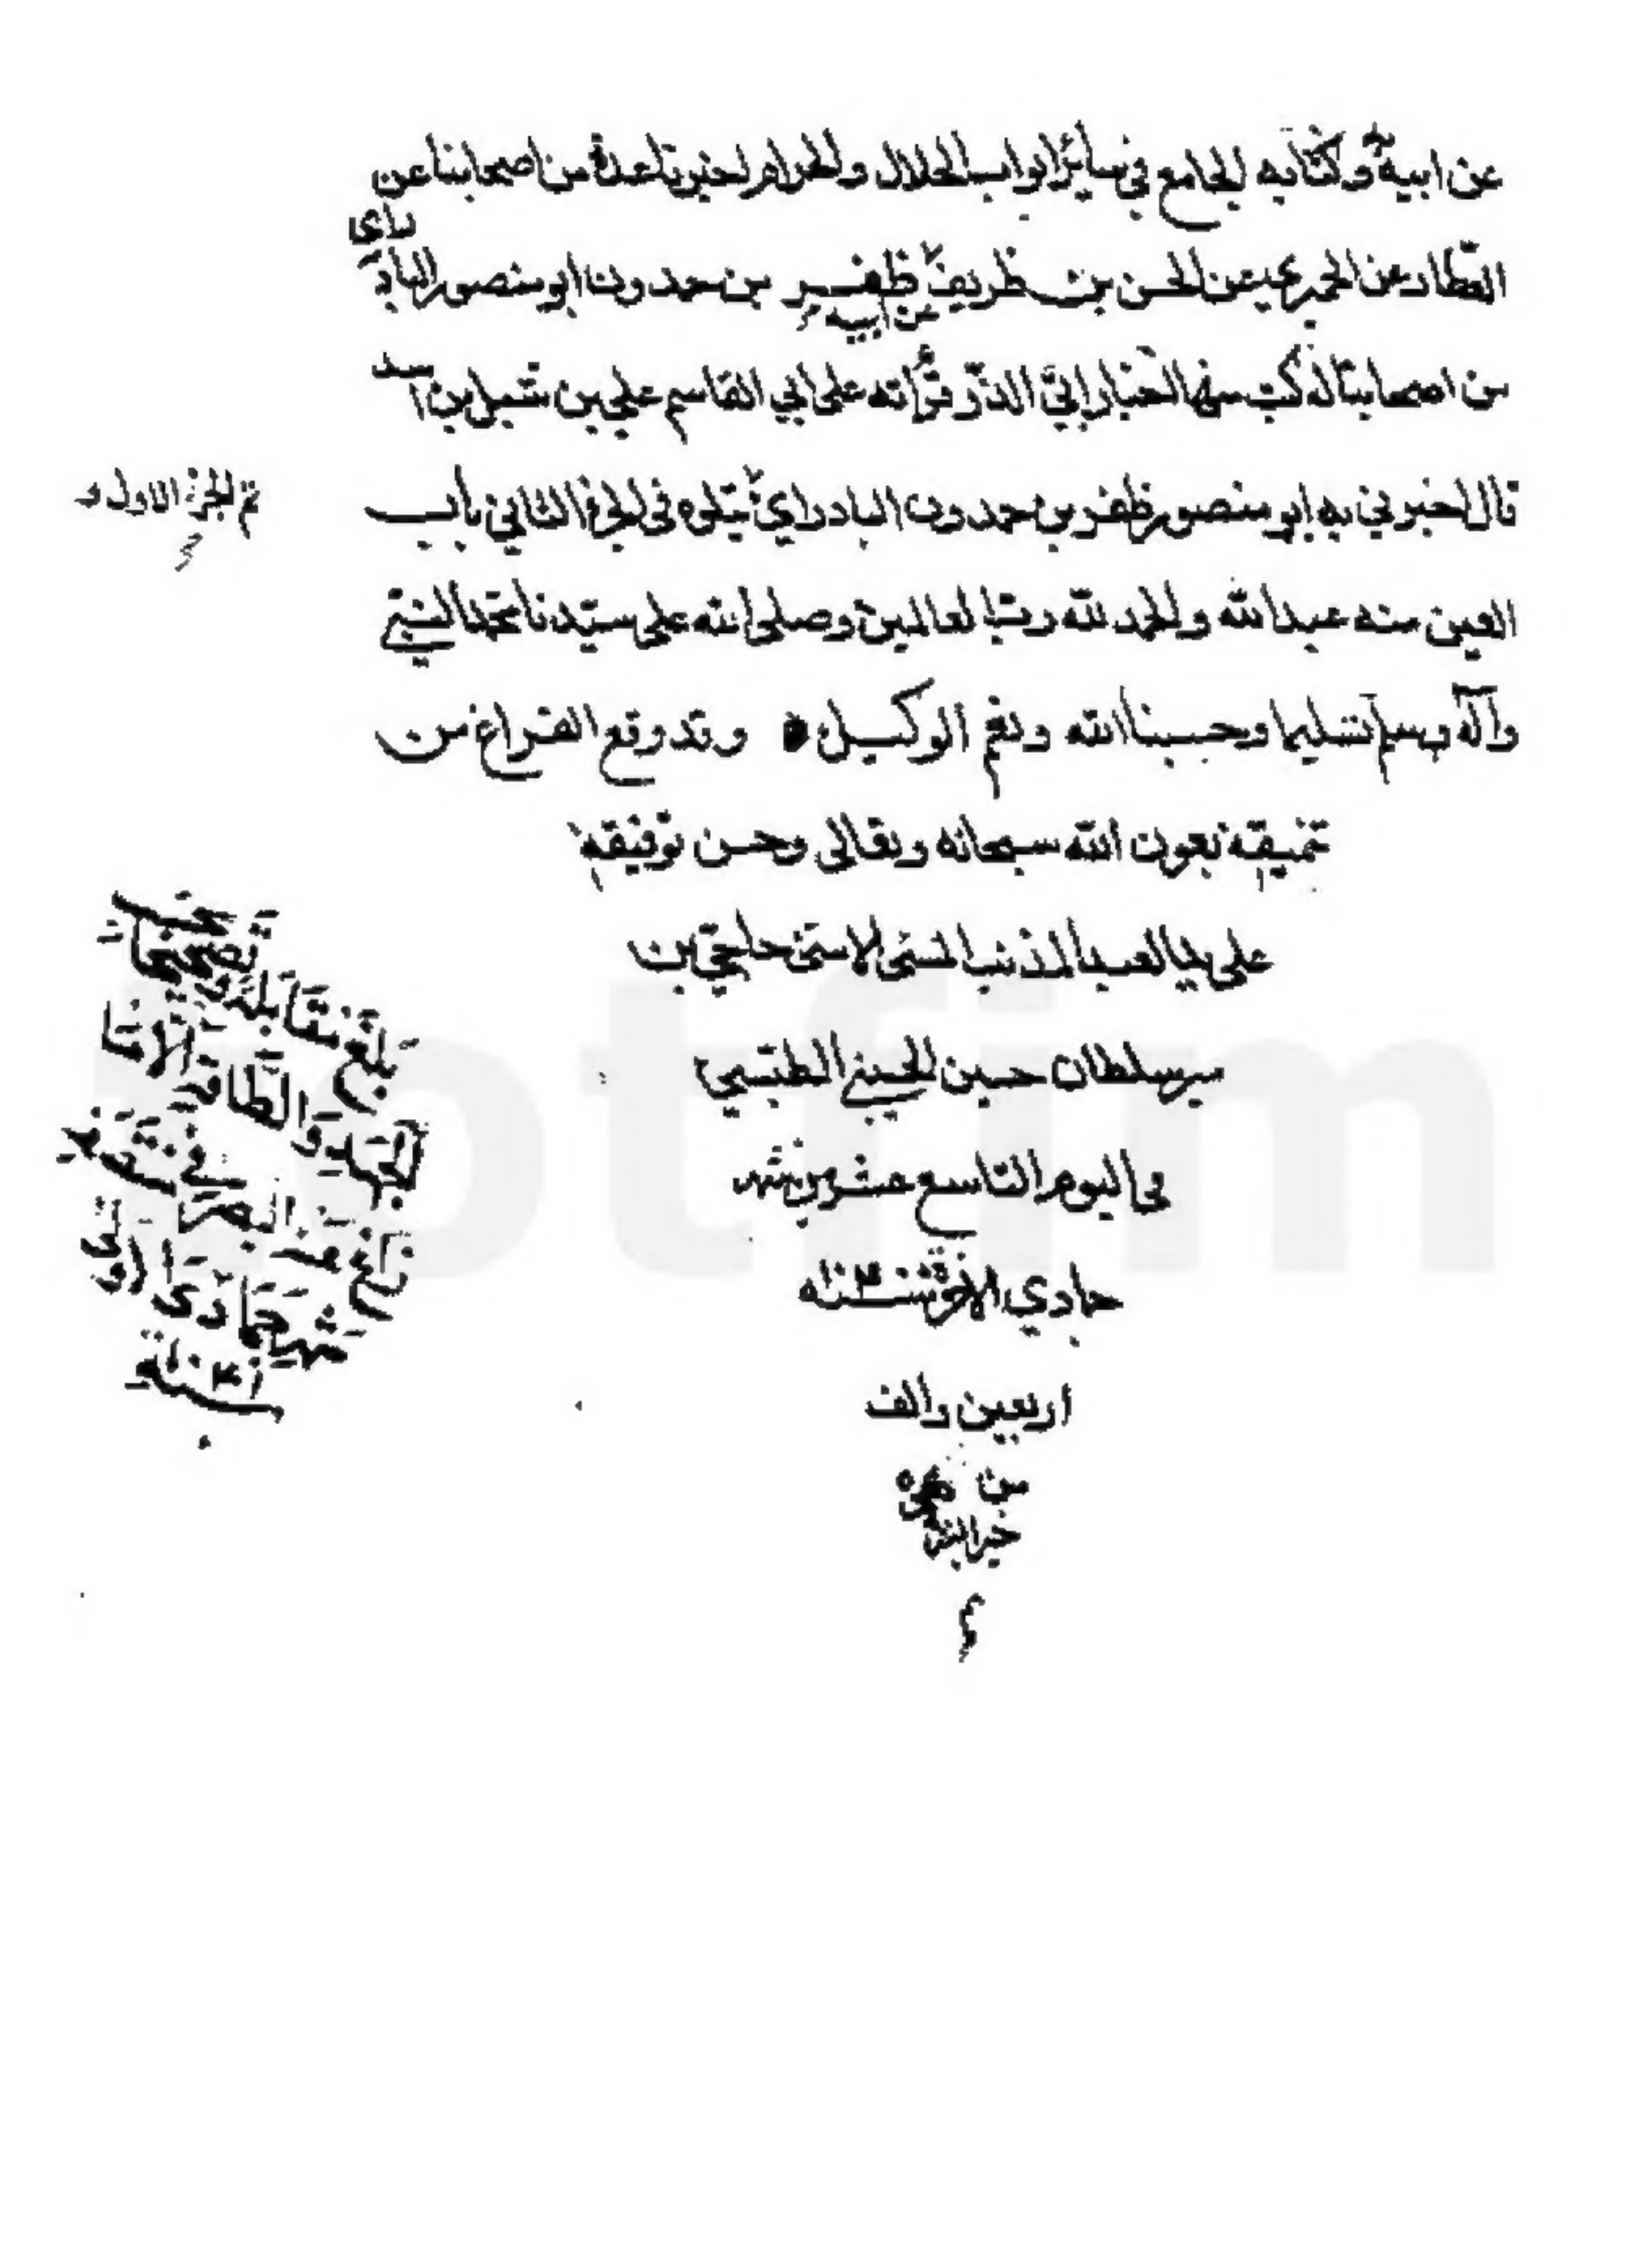 عن ابيه وكتابه الجامع في سائر ابواب الحلال والحرام اخبرنا عدة من اصحابنا عن
العطار عن الحميري عن الحسن بن ظريف عن ابيه ظفر بن حمدون ابو منصور البادرای
من اصحابنا له كتب منها اخبار ابي الذر قرأته على ابي القاسم علي بن شبل بن اسد
قال اخبرني به ابو منصور ظفر بن حمدون البادراي يتلوه في الجزء الثاني باب
العين منه عبد الله والحمد لله رب العالمين وصلى الله على سيدنا محمد النبي
وآله وسلم تسليما وحسبنا الله ونعم الوكيل وقد وقع الفراغ من
تنميقه بعون الله سبحانه وتعالى وحسن توفيقه
على يد العبد المذنب المسئ حاجي بن
مير سلطان حسين الحسيني الطبسي
في اليوم التاسع عشر من شهر
جمادي الاخر سنة
اربعين والف
من هجرة
خير البشر
تم الجزء الاول
بلغ مقابلة وتصحيحا بحسب
الجهد والطاقة الا ما
زاغ عنه البصر في
شهر جمادى الاولى